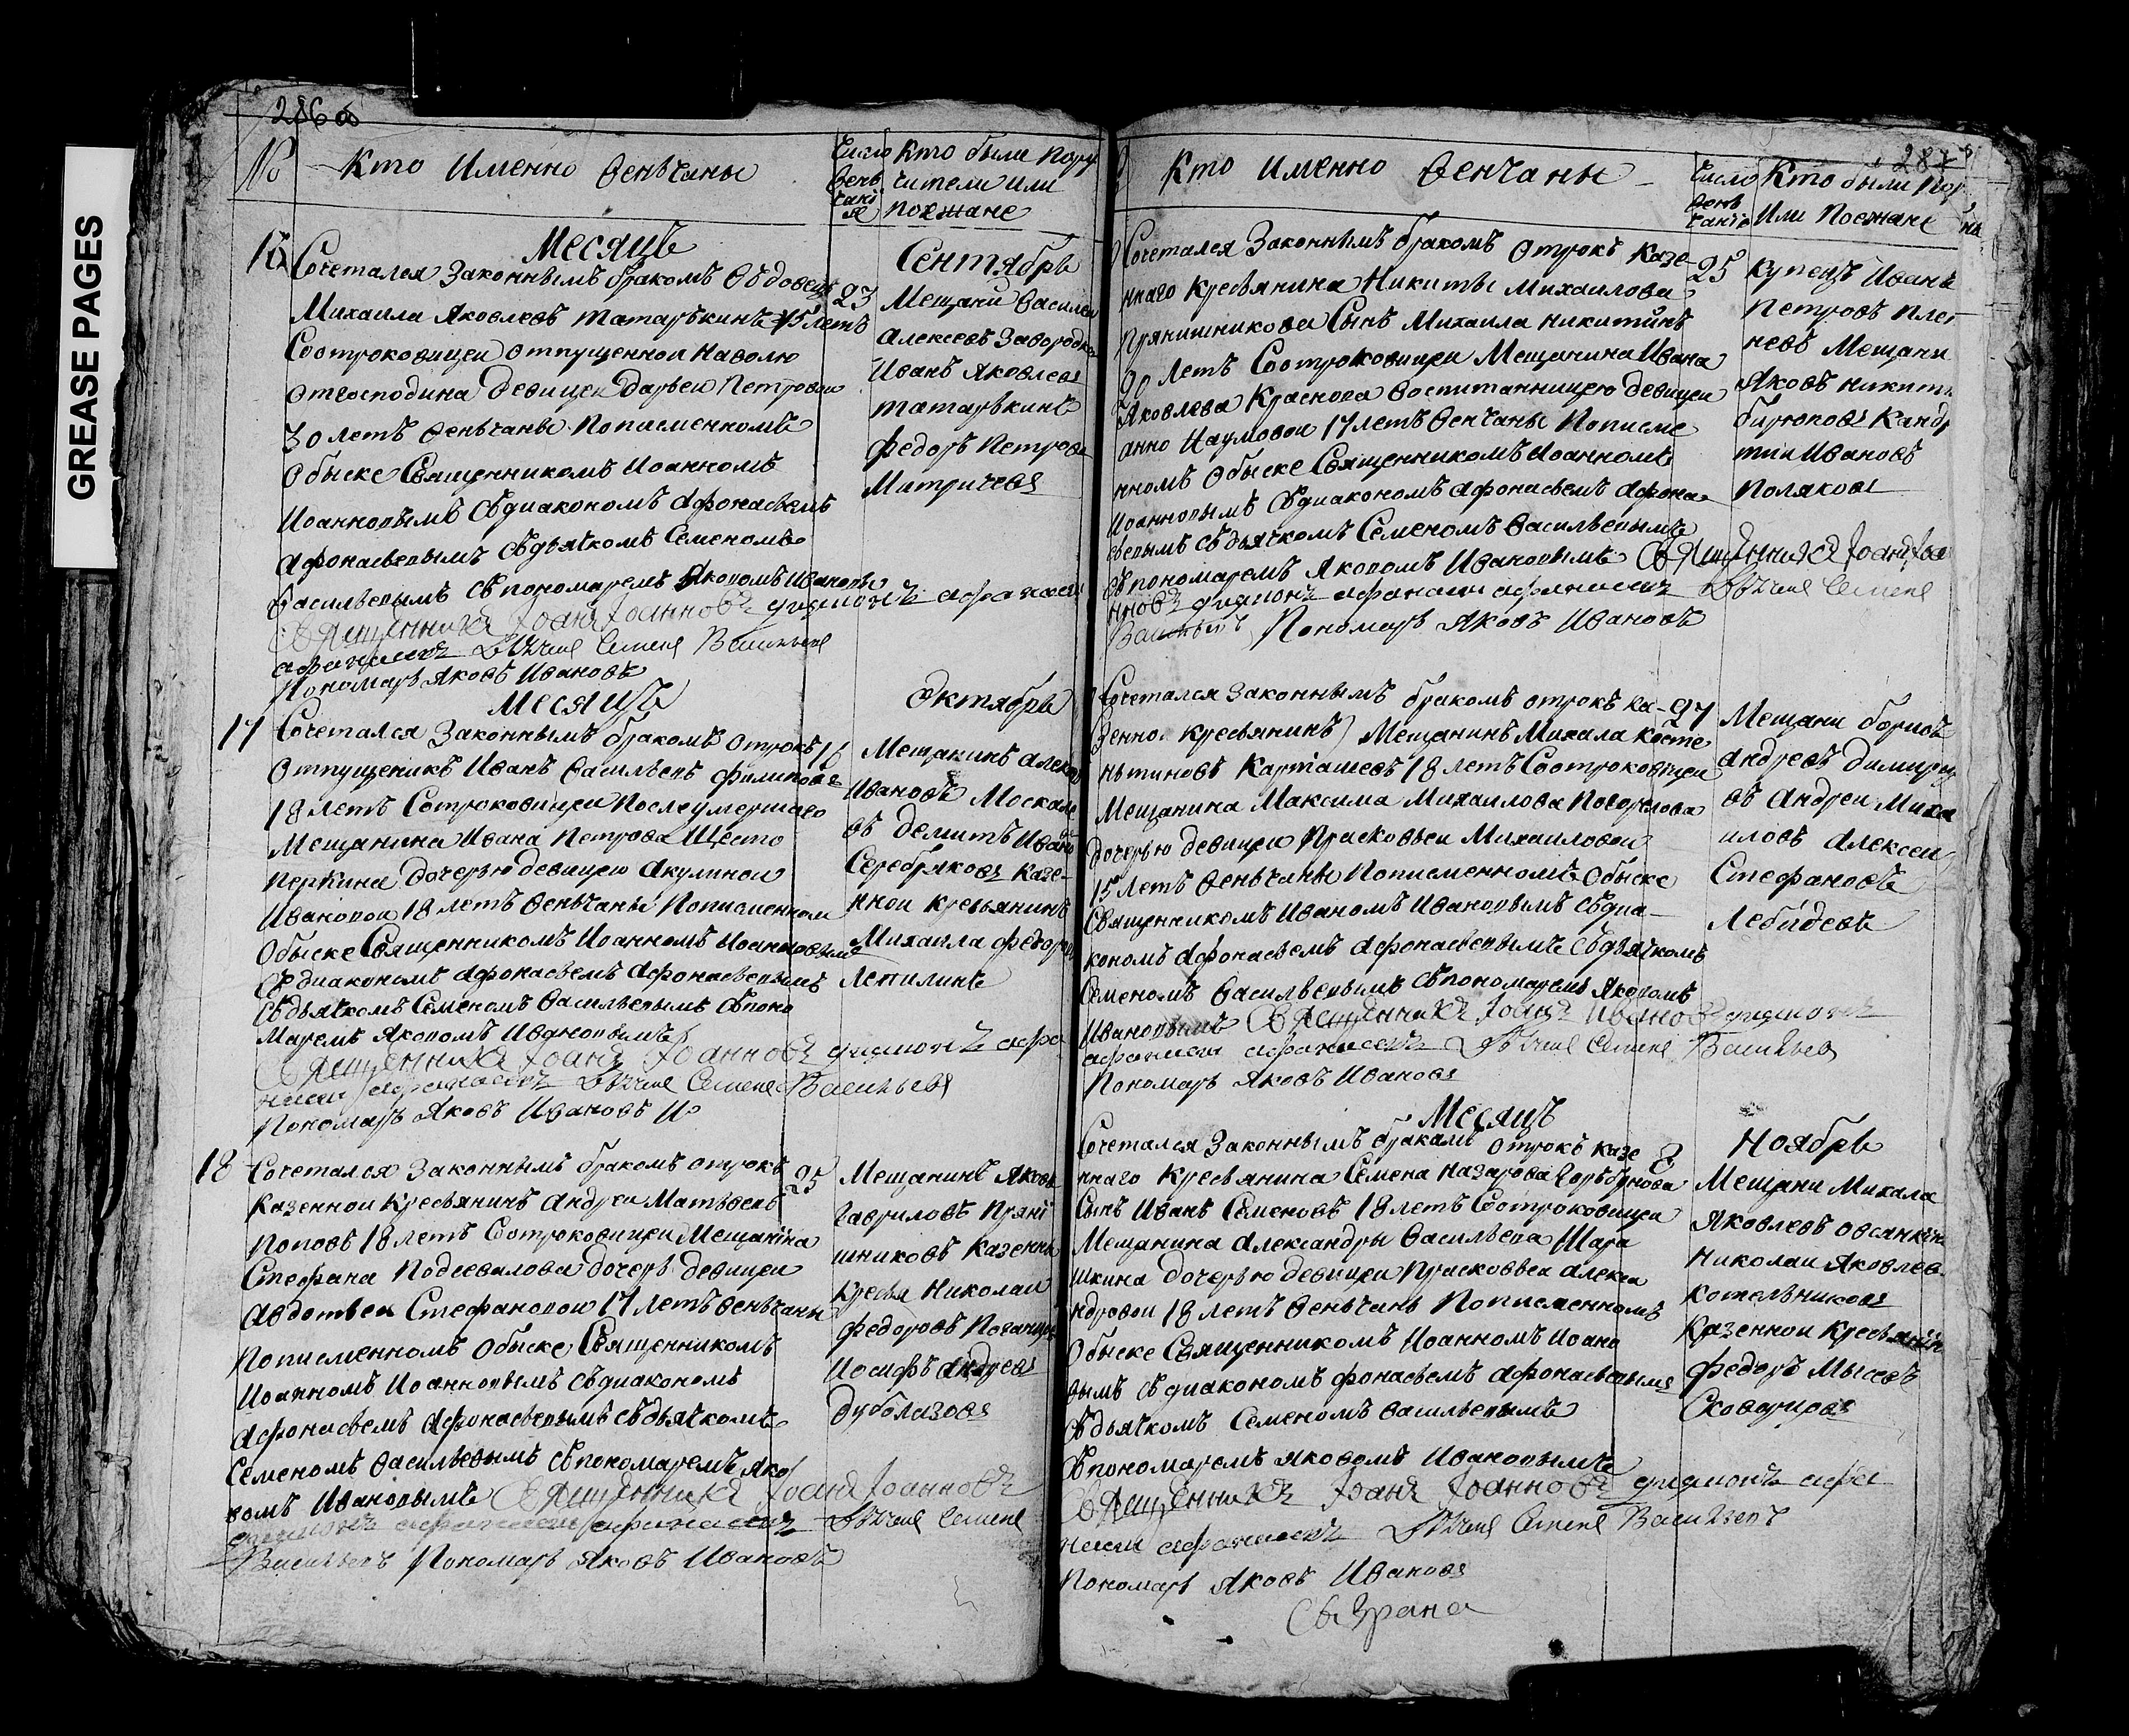 GREASE PAGES
286 об
№ Кто Именно венъчаны
Число венъчаніе
Кто были пору
чители или
поежане
Месяцъ Сентябрь
16 Сочетался Законнымъ бракомъ вдовецъ
Михаила Яковлевъ Татаръкинъ 45 летъ
Соотроковицеи отпущеннои наволю
отгосподина девицеи Дарьеи Петровои
30 летъ венъчаны пописменномъ
обыске Священникомъ Иоанномъ
Иоанновымъ съдиакономъ Афонасьемъ
Афонасьевымъ съдьячкомъ Семеномъ
васильевымъ съпономаремъ Яковомъ Ивановъ
Священникъ Іоанъ Іоанновъ диаконъ афанаси
афанасьевъ Дьячекъ Семенъ Васильевъ
Пономарь Яковъ Ивановъ
23
Мещани Василеи
Алексеевъ
Иванъ Яковлевъ
Татаръкинъ
Федоръ Петровъ
Митричевъ
Месяцъ Октябрь
17 Сочетался Законнымъ бракомъ отрокъ
отпущеникъ Иванъ Васильевъ Филиповъ
18 летъ Сотроковицеи после умершаго
Мещанина Ивана Петрова Шесто
перкина дочерью девицею Акулинои
Ивановои 18 летъ венъчаны пописменном
обыске Священникомъ Иоанномъ Иоанновымъ
съдиакономъ Афонасьемъ Афонасьевымъ
съдьячкомъ Семеномъ Васильевымъ съпоно
маремъ Яковомъ Ивановымъ
Священникъ Іоанъ Іоанновъ диаконъ афа
наси афанасьевъ Дьячекъ Семенъ Васильевъ
Пономарь Яковъ Ивановъ
Мещанинъ Алекс
Ивановъ Москале
въ Демитъ Ивано
Серебряковъ Казе-
ннои кресьянинъ
Михаила Федоро
Лепилинъ
18 Сочетался Законнымъ бракомъ отрокъ
казеннои кресьянинъ Андреи Матъвеевъ
Поповъ 18 летъ Сотроковицеи Мещанина
Стефана Подсевалова дочерь девицеи
Авдотьеи Стефановои 17 летъ венъчаны
пописменномъ обыске Священникомъ
Иоанномъ Иоанновымъ съдиакономъ
Афонасьемъ Афонасьевымъ съдьячкомъ
Семеномъ Васильевымъ съпономаремъ Яко
вомъ Ивановымъ Священникъ Іоанъ Іоанновъ
диаконъ афанаси афанасьевъ Дьячекъ Семенъ
Васильевъ Пономарь Яковъ Ивановъ
25
Мещанинъ Яковъ
Гавриловъ Пряні
шниковъ Казенны
кресья Николаи
Федоровъ
Иосифъ Андреевъ
Дуболазовъ
287
Кто Именно венчаны
Число венъчаніе
Кто были пор
Или Поежане
Сочетался Законнымъ бракомъ отрокъ казе-
ннаго кресьянина Никиты Михаилова
Прянишникова Сынъ Михаила Никитинъ
летъ Соотроковицеи Мещанина Ивана
Яковлева Краснова воспитанницею девицеи
Анно Наумовои 17 летъ венчаны пописме
нномъ обыске Священникомъ Иоанномъ
Иоанновымъ съдиакономъ Афонасьемъ Афона-
сьевымъ съдьячкомъ Семеномъ Васильевымъ
съпономаремъ Яковомъ Ивановымъ Священникъ Іоанъ Іоа
нновъ диаконъ афанаси афанасьевъ Дьячекъ Семенъ
Васильевъ Пономарь Яковъ Ивановъ
25
Купецъ Иванъ
Петровъ Плет
невъ Мещани
Яковъ Никити
Бирюковъ Кандр
тіи Ивановъ
Поляковъ
Сочетался Законнымъ бракомъ отрокъ ка-
зенно кресьянинъ) Мещанинъ Михаила Косте
нътиновъ Карташевъ 18 летъ Соотроковицеи
Мещанина Максима Михаилова Погорелова
дочерью девицеи Прасковьеи Михаиловои
15 летъ венъчаны пописменномъ обыске
Священникомъ Иваномъ Ивановымъ съдиа-
кономъ Афонасьемъ Афонасьевымъ съдьячкомъ
Семеномъ Васильевымъ съпономаремъ Яковомъ
Ивановымъ Священникъ Іоанъ Ивановъ диаконъ
афанаси афанасьевъ Дьячекъ Семенъ Васильевъ
Пономарь Яковъ Ивановъ
27
Мещани Борисъ
Андреевъ
въ Андреи Миха
иловъ Алексеи
Стефановъ
Лебидевъ
Месяцъ Ноябрь
Сочетался Законнымъ бракамъ отрокъ казе
ннаго кресьянина Семена Назарова Горъбунова
Сынъ Иванъ Семеновъ 18 летъ Сотроковицеи
Мещанина Александры Васильева Шара
шкина дочерью девицеи Прасковьеи Алекса
ндровои 18 летъ венъчаны пописменномъ
обыске Священникомъ Иоанномъ Иоано
вымъ съдиакономъ фонасьемъ Афонасьевымъ
съдьячкомъ Семеномъ Васильевымъ
съпономаремъ Яковомъ Ивановымъ
Священникъ Іоанъ Іоанновъ диаконъ афа
наси афанасьевъ Дьячекъ Семенъ Васильевъ
Пономарь Яковъ Ивановъ
8
Мещани Михала
Яковлевъ Овсянкин
Николаи Яковлев
Котельниковъ
Казеннои Кресьянин
Федоръ
Сковаровъ